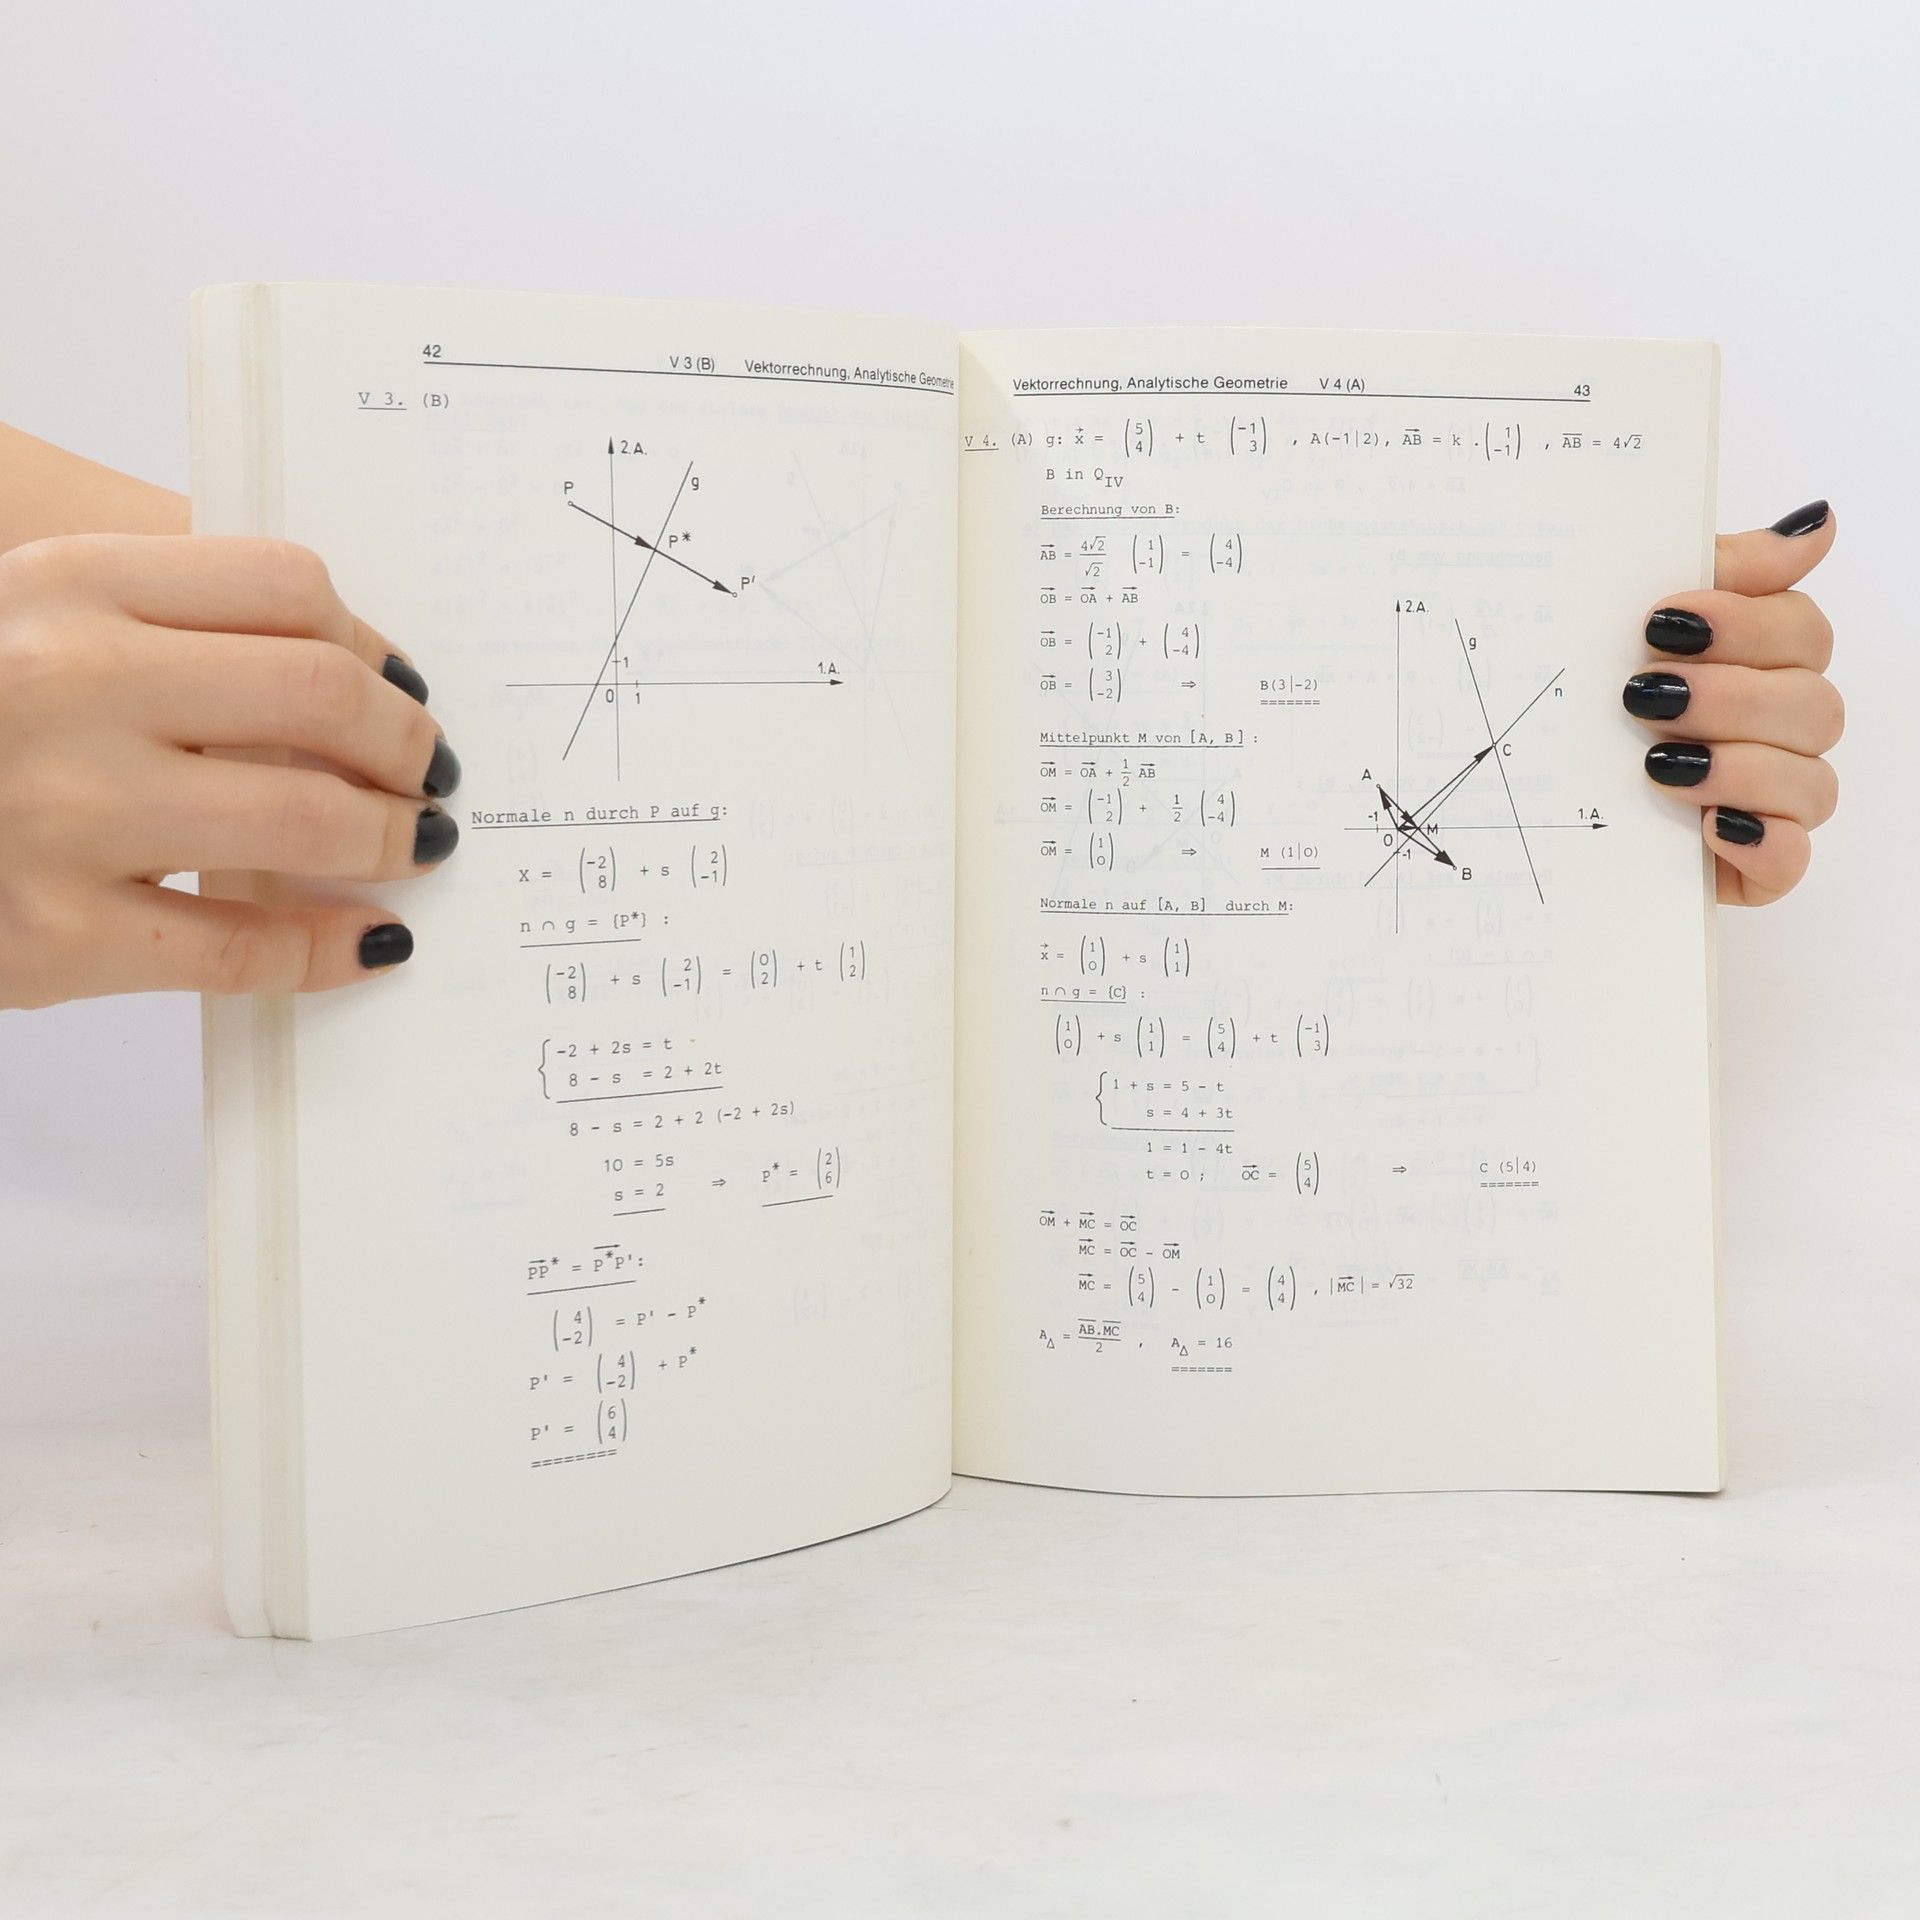 42 V 3 (B) Vektorrechnung, Analytische Geometrie
V 3. (B)
2.A.
g
P
P*
P'
1
1.A.
0 1
Normale n durch P auf g:
X = (-2 8) + s (2 -1)
n ∩ g = {P*} :
(-2 8) + s (2 -1) = (0 2) + t (1 2)
-2 + 2s = t
8 - s = 2 + 2t
8 - s = 2 + 2 (-2 + 2s)
10 = 5s
s = 2 ⇒ P* = (2 6)
PP* = P*P':
(4 -2) = P' - P*
P' = (4 -2) + P*
P' = (6 4)
Vektorrechnung, Analytische Geometrie V 4 (A) 43
V 4. (A) g: x⃗ = (5 4) + t (-1 3) , A(-1|2), AB = k . (1 -1) , AB = 4√2
B in Q_IV
Berechnung von B:
AB = 4√2/√2 (1 -1) = (4 -4)
OB = OA + AB
OB = (-1 2) + (4 -4)
OB = (3 -2) ⇒ B(3|-2)
Mittelpunkt M von [A, B] :
OM = OA + 1/2 AB
OM = (-1 2) + 1/2 (4 -4)
OM = (1 0) ⇒ M (1|0)
2.A.
g
n
C
A
-1
1.A.
O
M
-1
B
Normale n auf [A, B] durch M:
x⃗ = (1 0) + s (1 1)
n ∩ g = {C} :
(1 0) + s (1 1) = (5 4) + t (-1 3)
1 + s = 5 - t
s = 4 + 3t
1 = 1 - 4t
t = 0 ; OC = (5 4) ⇒ C (5|4)
OM + MC = OC
MC = OC - OM
MC = (5 4) - (1 0) = (4 4) , |MC| = √32
A_Δ = AB.MC/2 , A_Δ = 16